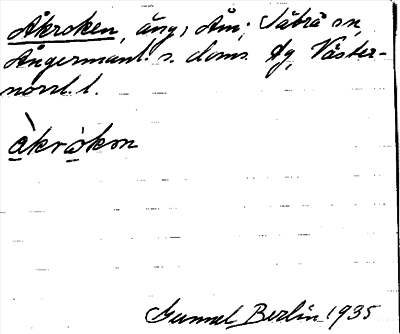 Åkroken, äng, Åm, Säbrå sn,
Ångermanl. s. doms. Ag, Väster-
norrl. l.
àkrokɷn
Gunnel Berlin 1935